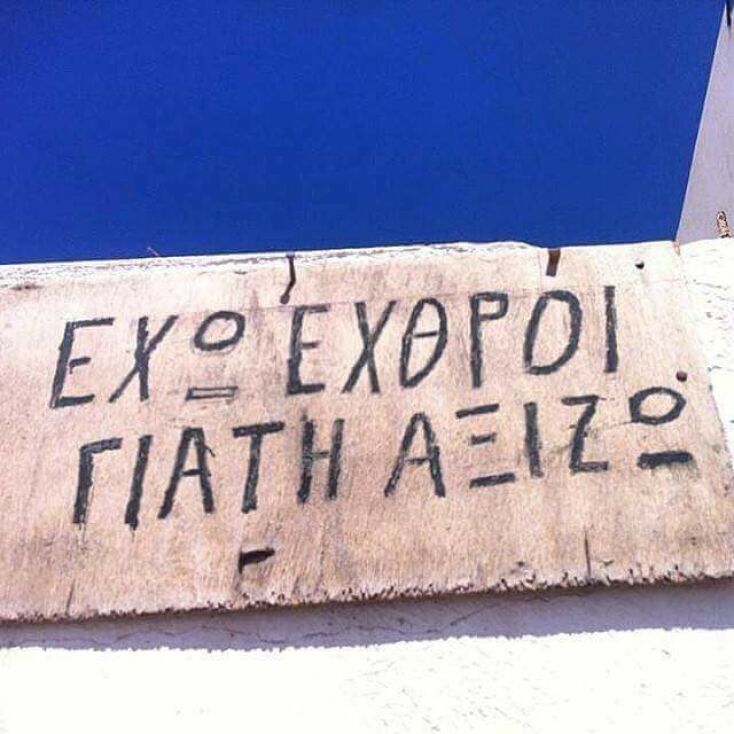 ΕΧΩ ΕΧΘΡΟΙ
ΓΙΑΤΗ ΑΞΙΖΩ